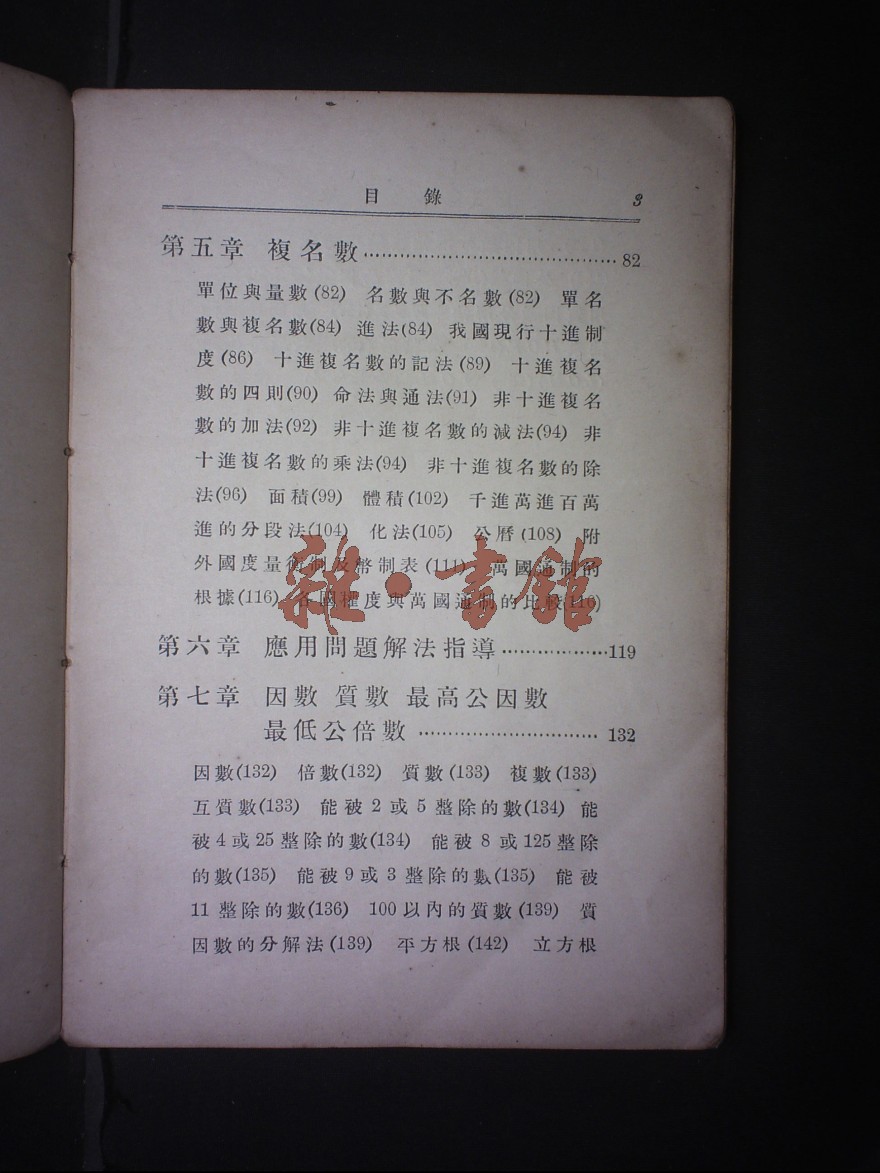 目 錄 3
第五章 複名數 ........................................ 82
單位與量數(82) 名數與不名數(82) 單名
數與複名數(84) 進法(84) 我國現行十進制
度(86) 十進複名數的記法(89) 十進複名
數的四則(90) 命法與通法(91) 非十進複名
數的加法(92) 非十進複名數的減法(94) 非
十進複名數的乘法(94) 非十進複名數的除
法(96) 面積(99) 體積(102) 千進萬進百萬
進的分段法(104) 化法(105) 公曆(108) 附
外國度量衡制及幣制表(111) 萬國通制的
根據(116) 各國權度與萬國通制的比較(116)
雜·書館
第六章 應用問題解法指導 ..................119
第七章 因數 質數 最高公因數
最低公倍數 .............................. 132
因數(132) 倍數(132) 質數(133) 複數(133)
互質數(133) 能被 2 或 5 整除的數(134) 能
被 4 或 25 整除的數(134) 能被 8 或 125 整除
的數(135) 能被 9 或 3 整除的數(135) 能被
11 整除的數(136) 100 以內的質數(139) 質
因數的分解法(139) 平方根(142) 立方根